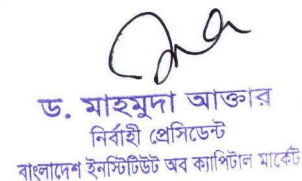 ড. মাহমুদা আক্তার
নির্বাহী প্রেসিডেন্ট
বাংলাদেশ ইনস্টিটিউট অব ক্যাপিটাল মার্কেট